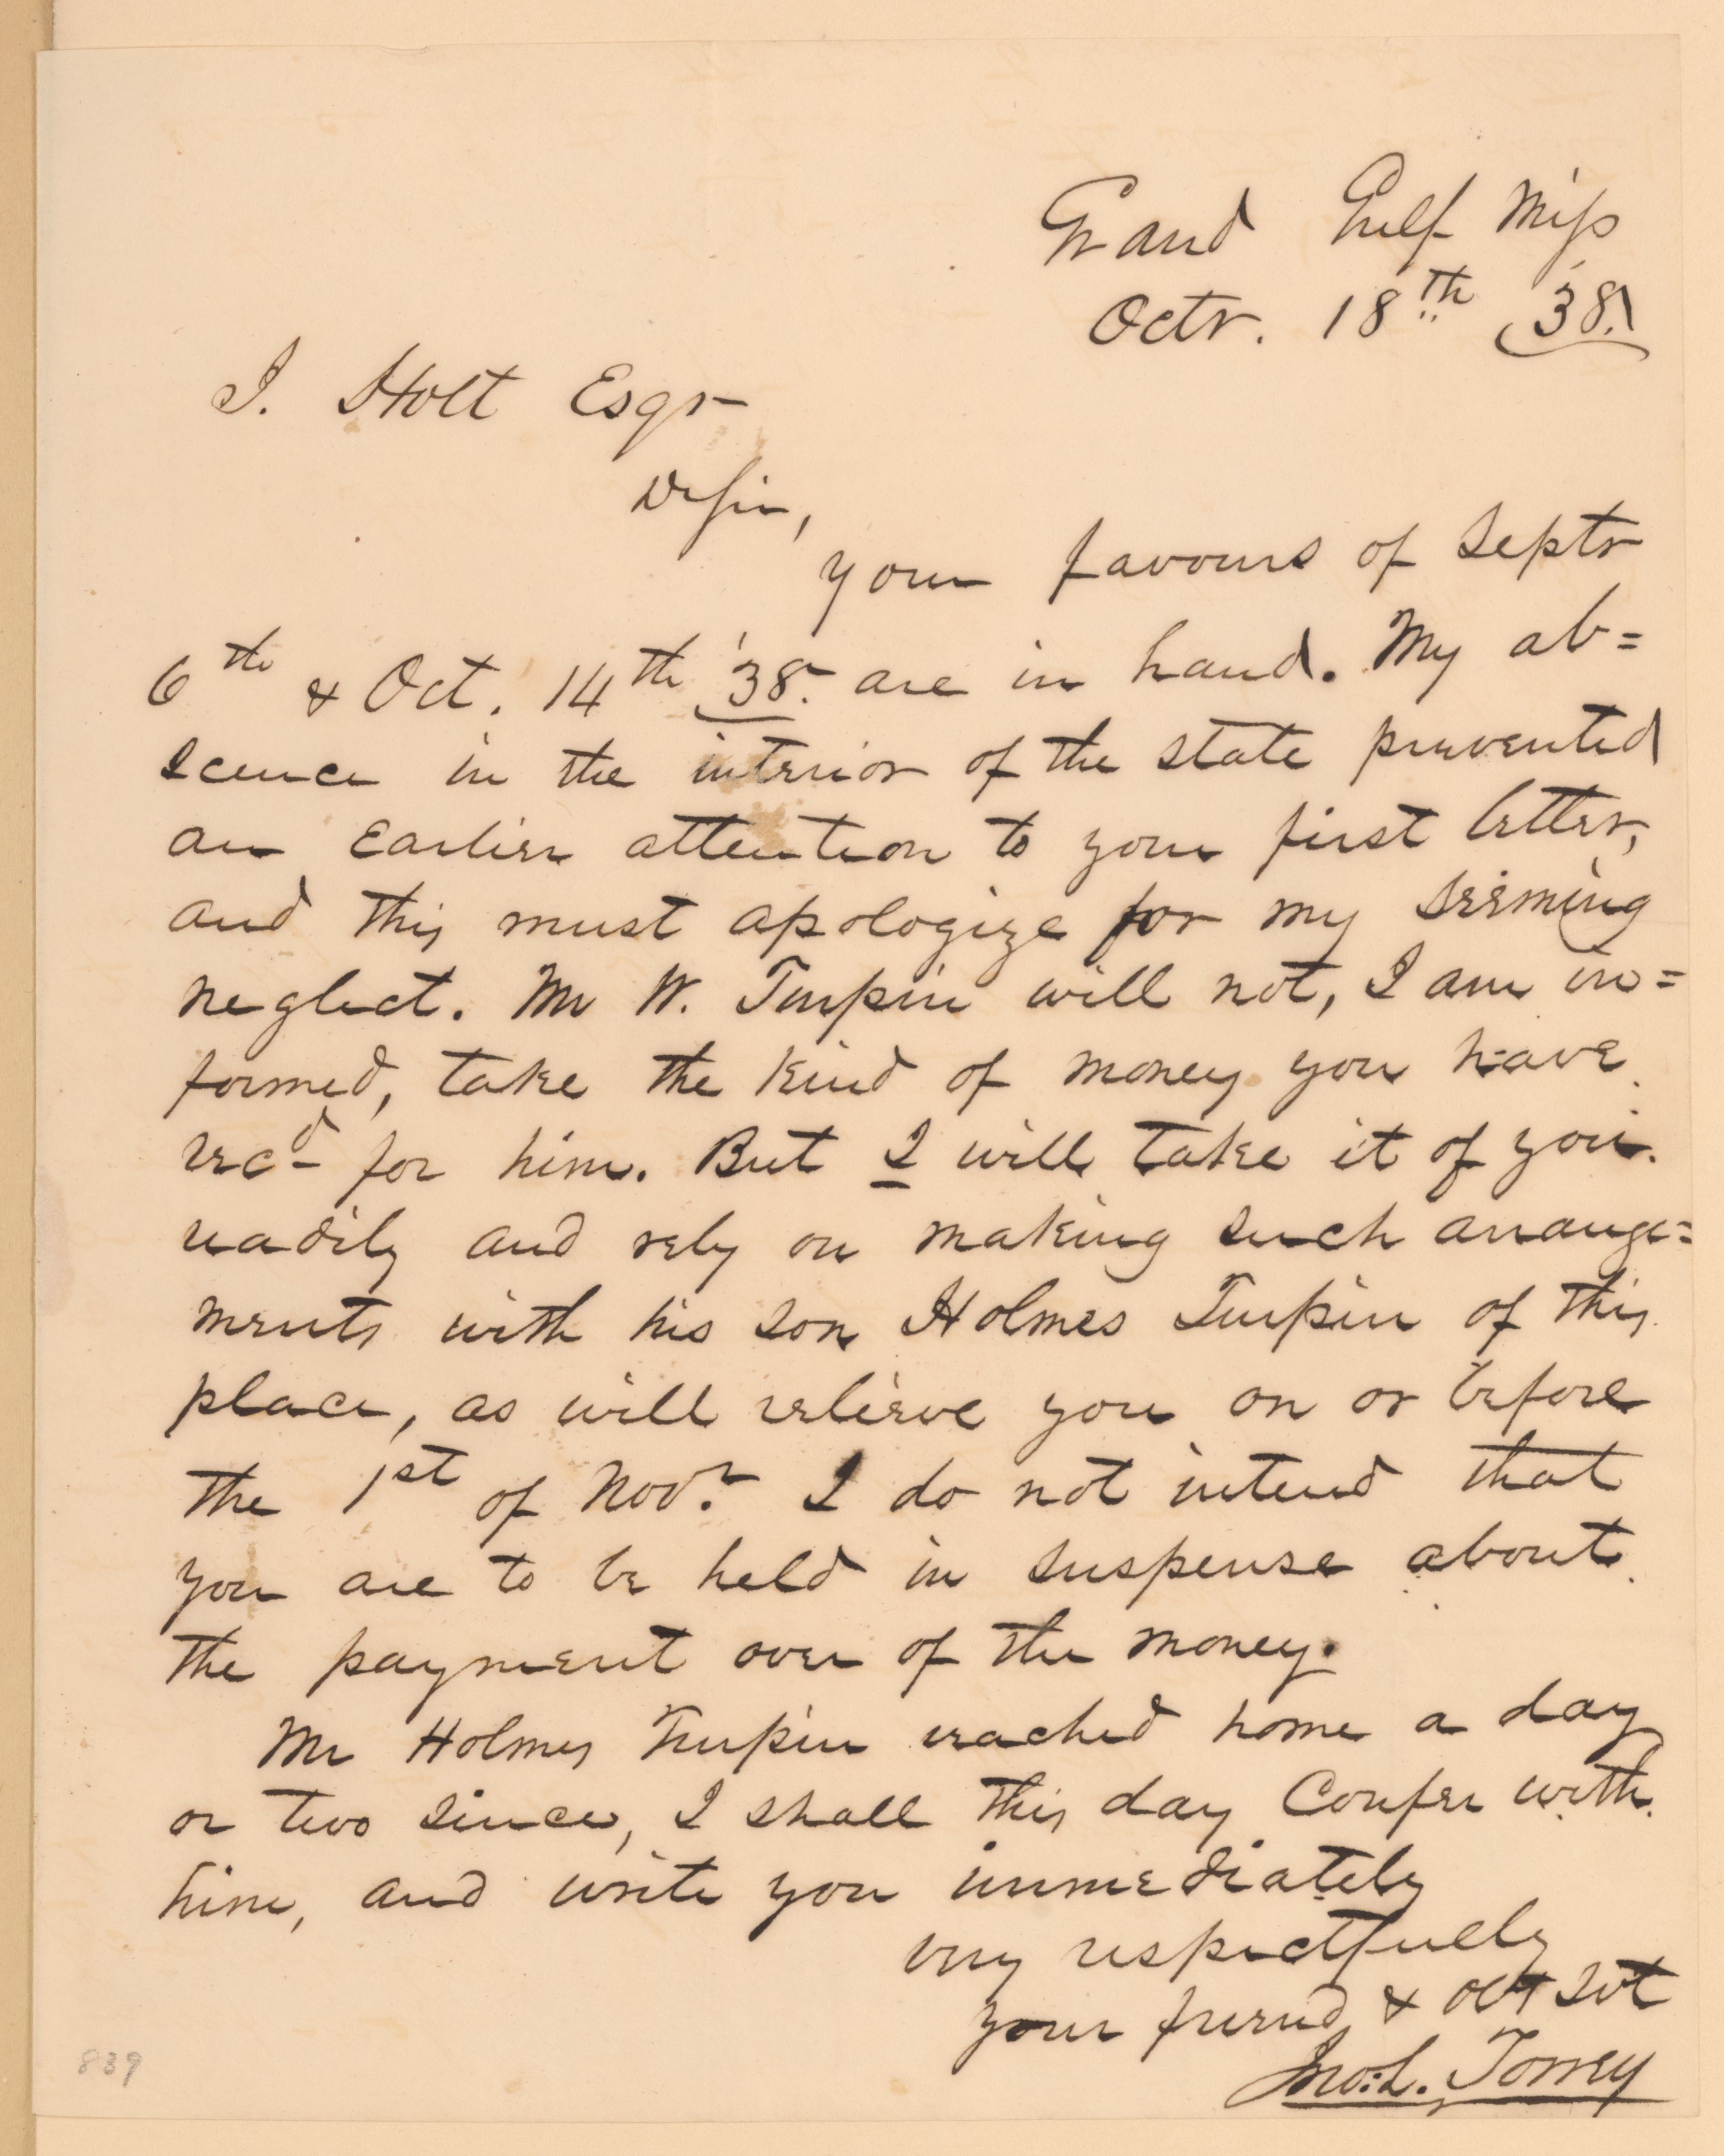 Grand Gulf Miss
Octr. 18th '38.
J. Holt Esqr
Dr Sir,
your favours of Septr
6th & Oct. 14th '38. are in hand. My ab=
scence in the interior of the state prevented
an earlier attention to your first letter,
and this must apologize for my seeming
neglect. Mr W. Turpin will not, I am in=
formed, take the kind of money you have
recd for him. But I will take it of you
readily and rely on making such arrange=
ments with his son Holmes Turpin of this
place, as will relieve you on or before
the 1st of Novr. I do not intend that
you are to be held in suspense about
the payment over of the money.
Mr Holmes Turpin reached home a day
or two since, I shall this day Confer with
him, and write you immediately
very respectfully
your friend & obt svt
Jno: L. Torrey
839